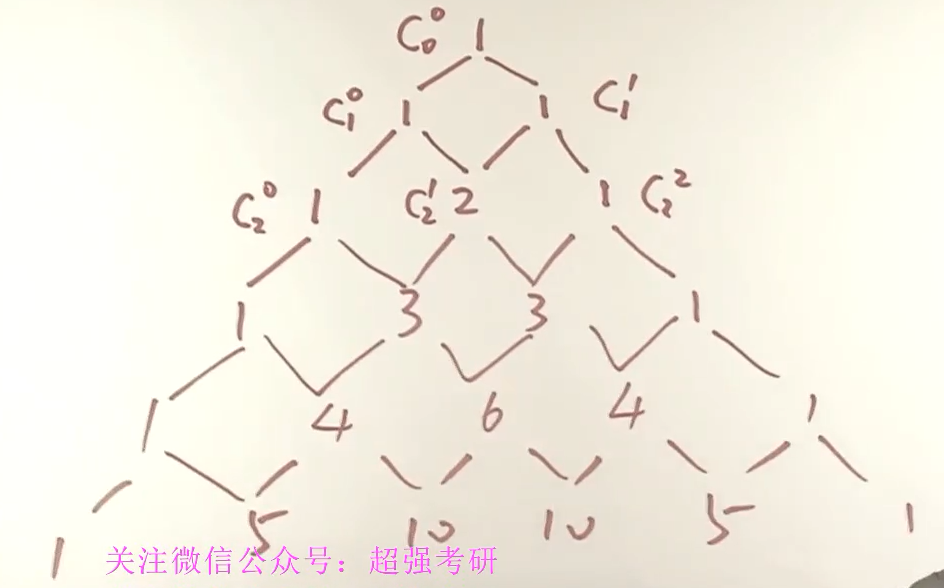 C₀⁰ 1
C₁⁰ 1 1 C₁¹
C₂⁰ 1 C₂¹ 2 1 C₂²
1 3 3 1
1 4 6 4 1
1 5 10 10 5 1
关注微信公众号：超强考研